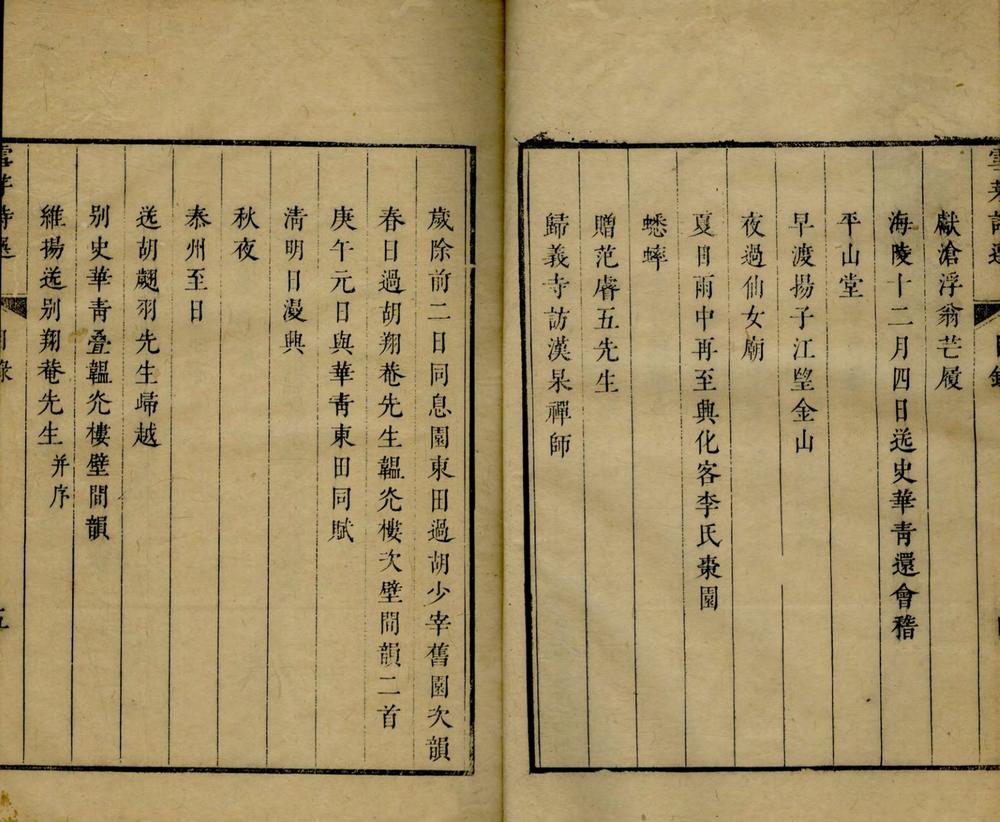 獻滄浮翁芒履
海陵十二月四日送史華青還會稽
平山堂
早渡揚子江望金山
夜過仙女廟
夏日雨中再至興化客李氏棗園
蟋蟀
贈范睿五先生
歸義寺訪漢杲禪師
歲除前二日同息園東田過胡少宰舊園次韻
春日過胡翔菴先生韞光樓次壁間韻二首
庚午元日與華青東田同賦
清明日漫興
秋夜
泰州至日
送胡翽羽先生歸越
别史華青疊韞光樓壁間韻
維揚送别翔菴先生并序
五